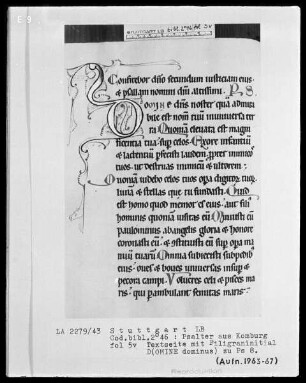 Confitebor dño secundum iusticiam eius
& psallam nomini dñi altissimi. Ps 8.
Domine dñs noster quã admira
bile est nom̃ tuũ in uniuersa ter
ra Quoniã eleuata est mag
nificencia tua sup celos Ex ore infantiũ
& lactentiũ pfecisti laudem ppter inimicos
tuos ut destruas inimicũ & ultorem
Quoniã uidebo celos tuos opa digitoꝝ tuoꝝ
lunã & stellas que tu fundasti Quid
est homo quod memor es eius aut fili
hominis quoniã uisitas eũ Minuisti eũ
paulominus ab angelis gloria & honore
coronasti eũ & cstituisti eũ sup opa ma
nuũ tuarũ Omnia subiecisti sub pedib
eius oues & boues uniuersas insup &
pecora campi Volucres celi & pisces ma
ris qui pambulant semitas maris
LA 2279/43 Stuttgart LB
Cod.bibl.2°46 : Psalter aus Komburg
fol 5v Textseite mit Filigraninitial
D(OMINE dominus) zu Ps 8.
(Aufn.1963-67)